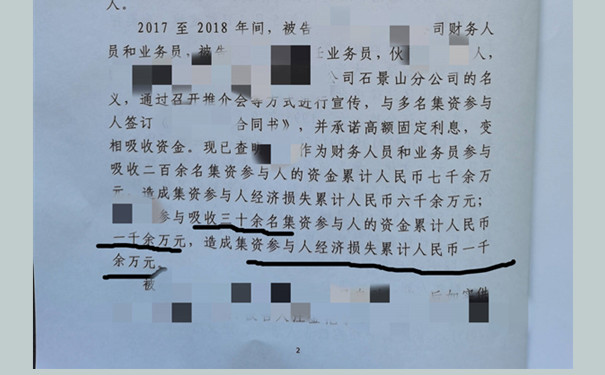 人。
2017 至 2018 年间，被告 司财务人
员和业务员，被告 业务员，伙 人，
公司石景山分公司的名
义，通过召开推介会等方式进行宣传，与多名集资参与
人签订 合同书》，并承诺高额固定利息，变
相吸收资金。现已查明 作为财务人员和业务员参与
吸收二百余名集资参与人的资金累计人民币七千余万
元，造成集资参与人经济损失累计人民币六千余万元；
参与吸收三十余名集资参与人的资金累计人民币
一千余万元，造成集资参与人经济损失累计人民币一千
余万元。
被
2